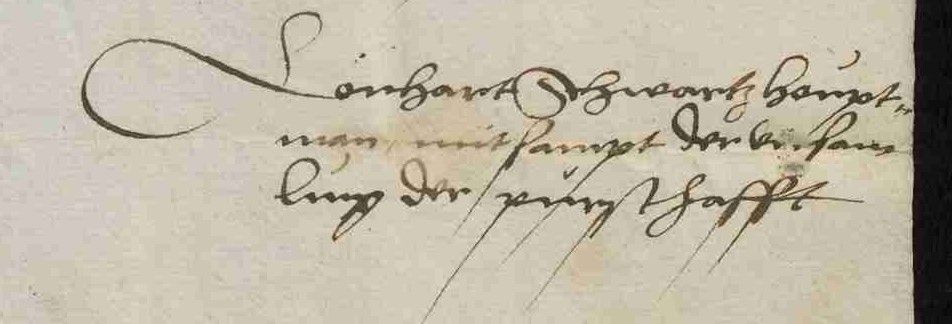 Lönhart Schwartz houpt-
man mitsampt der versam
lung der pursthafft